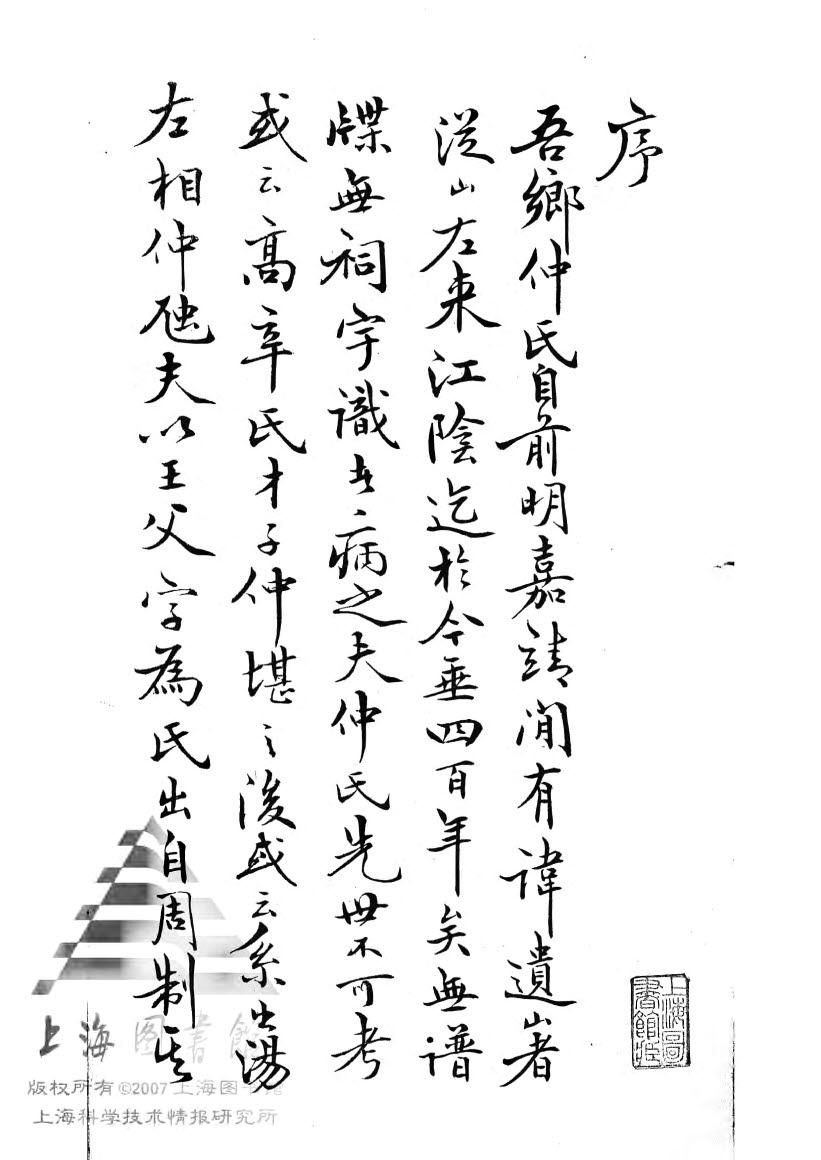 序
吾鄉仲氏自前明嘉靖間有諱遺山者
從山左來江陰迄於今垂四百年矣無譜
牒無祠宇識者病之夫仲氏先世不可考
或云高辛氏才子仲堪之後或云系出湯
左相仲虺夫以王父字為氏出自周制其
上海圖書館藏
上海图书馆
版权所有©2007 上海图书馆
上海科学技术情报研究所